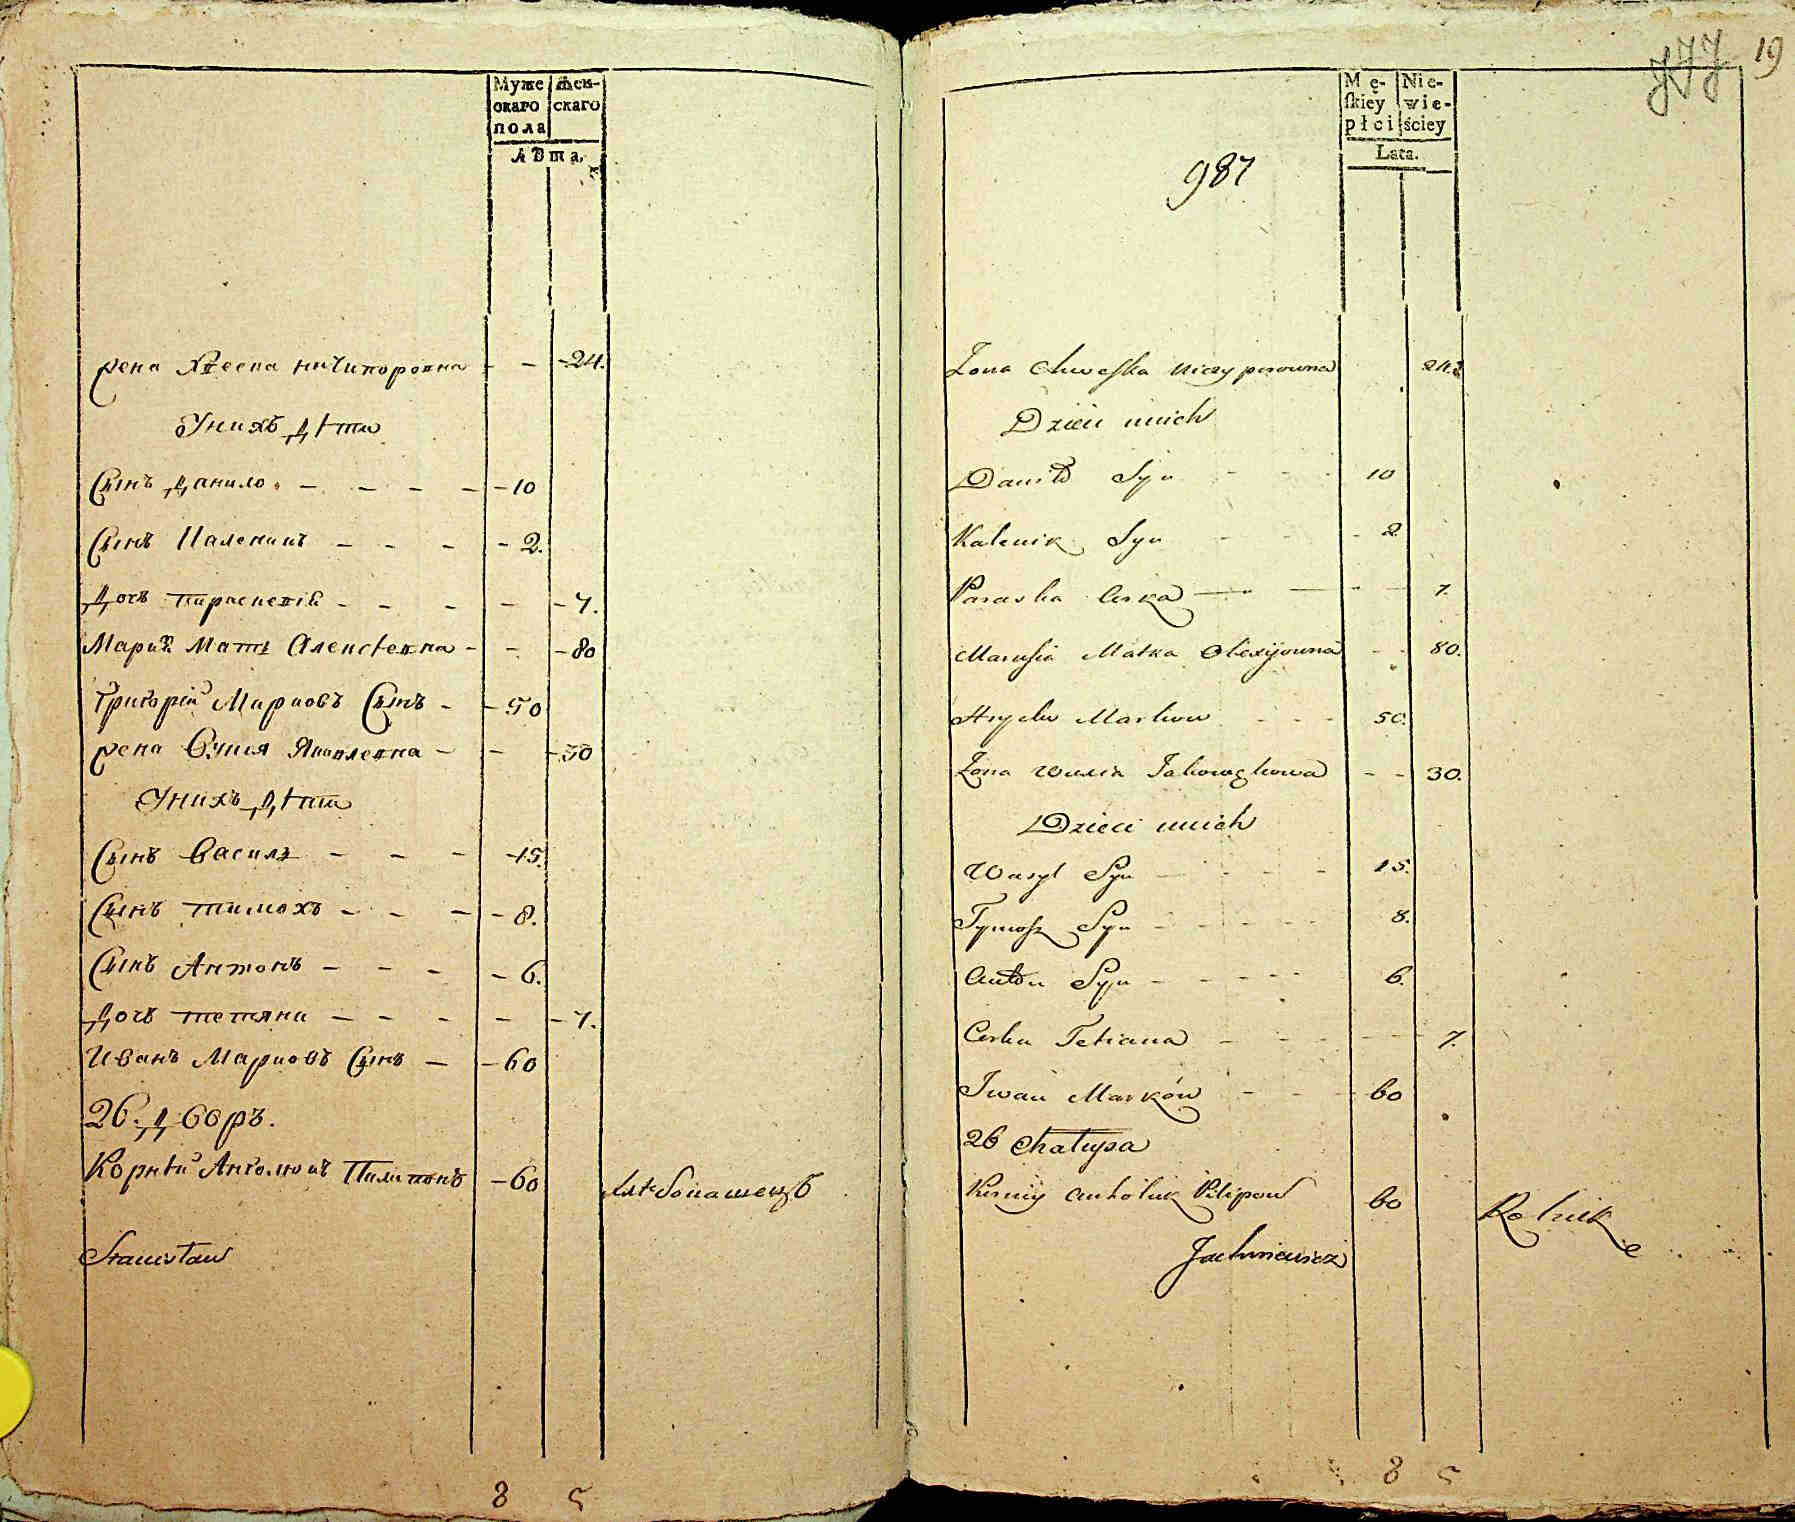 Муже
скаго
пола
Жен-
скаго
Лѣта.
жена Хвеска ничипоровна - - -24.
Унихъ Дѣти
Сынъ Данило. - - - - -10
Сынъ Каленикъ - - - -2.
Дочь параскевія - - - - -7.
Мария Мать Алексѣевна - - -80
Григорій Марковъ Сынъ - -50
жена Вулия Яковлевна - - -30
Унихъ Дѣти
Сынъ Василь - - - -15.
Сынъ тимохъ - - - -8.
Сынъ Антонъ - - - -6.
Дочь тетяна - - - - - -7.
Иванъ Марковъ Сынъ - -60
26. Дворъ.
Корнѣй Антолюкъ Пилиповъ -60 хлѣбопашецъ
Stanisław
8 5
19
Mę-
ſkiey
płci
Nie-
wie-
ściey
Lata.
987
Żona Chweſka Niczyporowna 24.
Dzieci unich
Daniło Syn - - - 10
Kalenik Syn - - - 2
Paraska Corka - - - - 7.
Marusia Matka Olexijowna - - 80.
Hrycko Markow - - - 50.
Żona Wulia Jakowlowa - - 30.
Dzieci unich
Wasyl Syn - - - - 15.
Tymoſz Syn - - - - 8.
Anton Syn - - - - - 6.
Corka Tetiana - - - - - 7.
Iwan Marków - - - 60
26 Chałupa
Kerniy Antoluk Pilipow 60 Rolnik
Jachimowicz
8 5